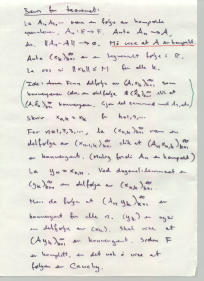 Bevis for teoremet:
La A₁, A₂, ... være en følge av kompakte
operatorer, Aₙ : E → F. Anta Aₙ → A,
dvs. ‖Aₙ - A‖ → 0. Må vise at A er kompakt.
Anta (xₖ)ₖ₌₁^∞ er en begrenset følge i E.
La oss si ‖xₖ‖ ≤ M for alle k.
Idé: finne en delfølge av
konvergerer
konvergent. Gjør det samme med A₂, A₃,
Skriv x₀,ₖ = xₖ for k=1,2,...
For n=1,2,3,..., la (xₙ,ₖ)ₖ₌₁^∞ være en
delfølge av (xₙ₋₁,ₖ)ₖ₌₁^∞ slik at (Aₙxₙ,ₖ)ₖ₌₁^∞
er konvergent. (Mulig fordi Aₙ er kompakt)
La yₖ = xₖ,ₖ. Ved diagonalelement er
(yₖ)ₖ₌₁^∞ en delfølge av (xₙ,ₖ)ₖ₌₁^∞
Men da følger at (Aₙyₖ)ₖ₌₁^∞ er
konvergent for alle n. (yₖ) er også
en delfølge av (xₖ). Skal vise at
(Ayₖ)ₖ₌₁^∞ er konvergent. Siden F
er komplett, er det nok å vise at
følgen er Cauchy.